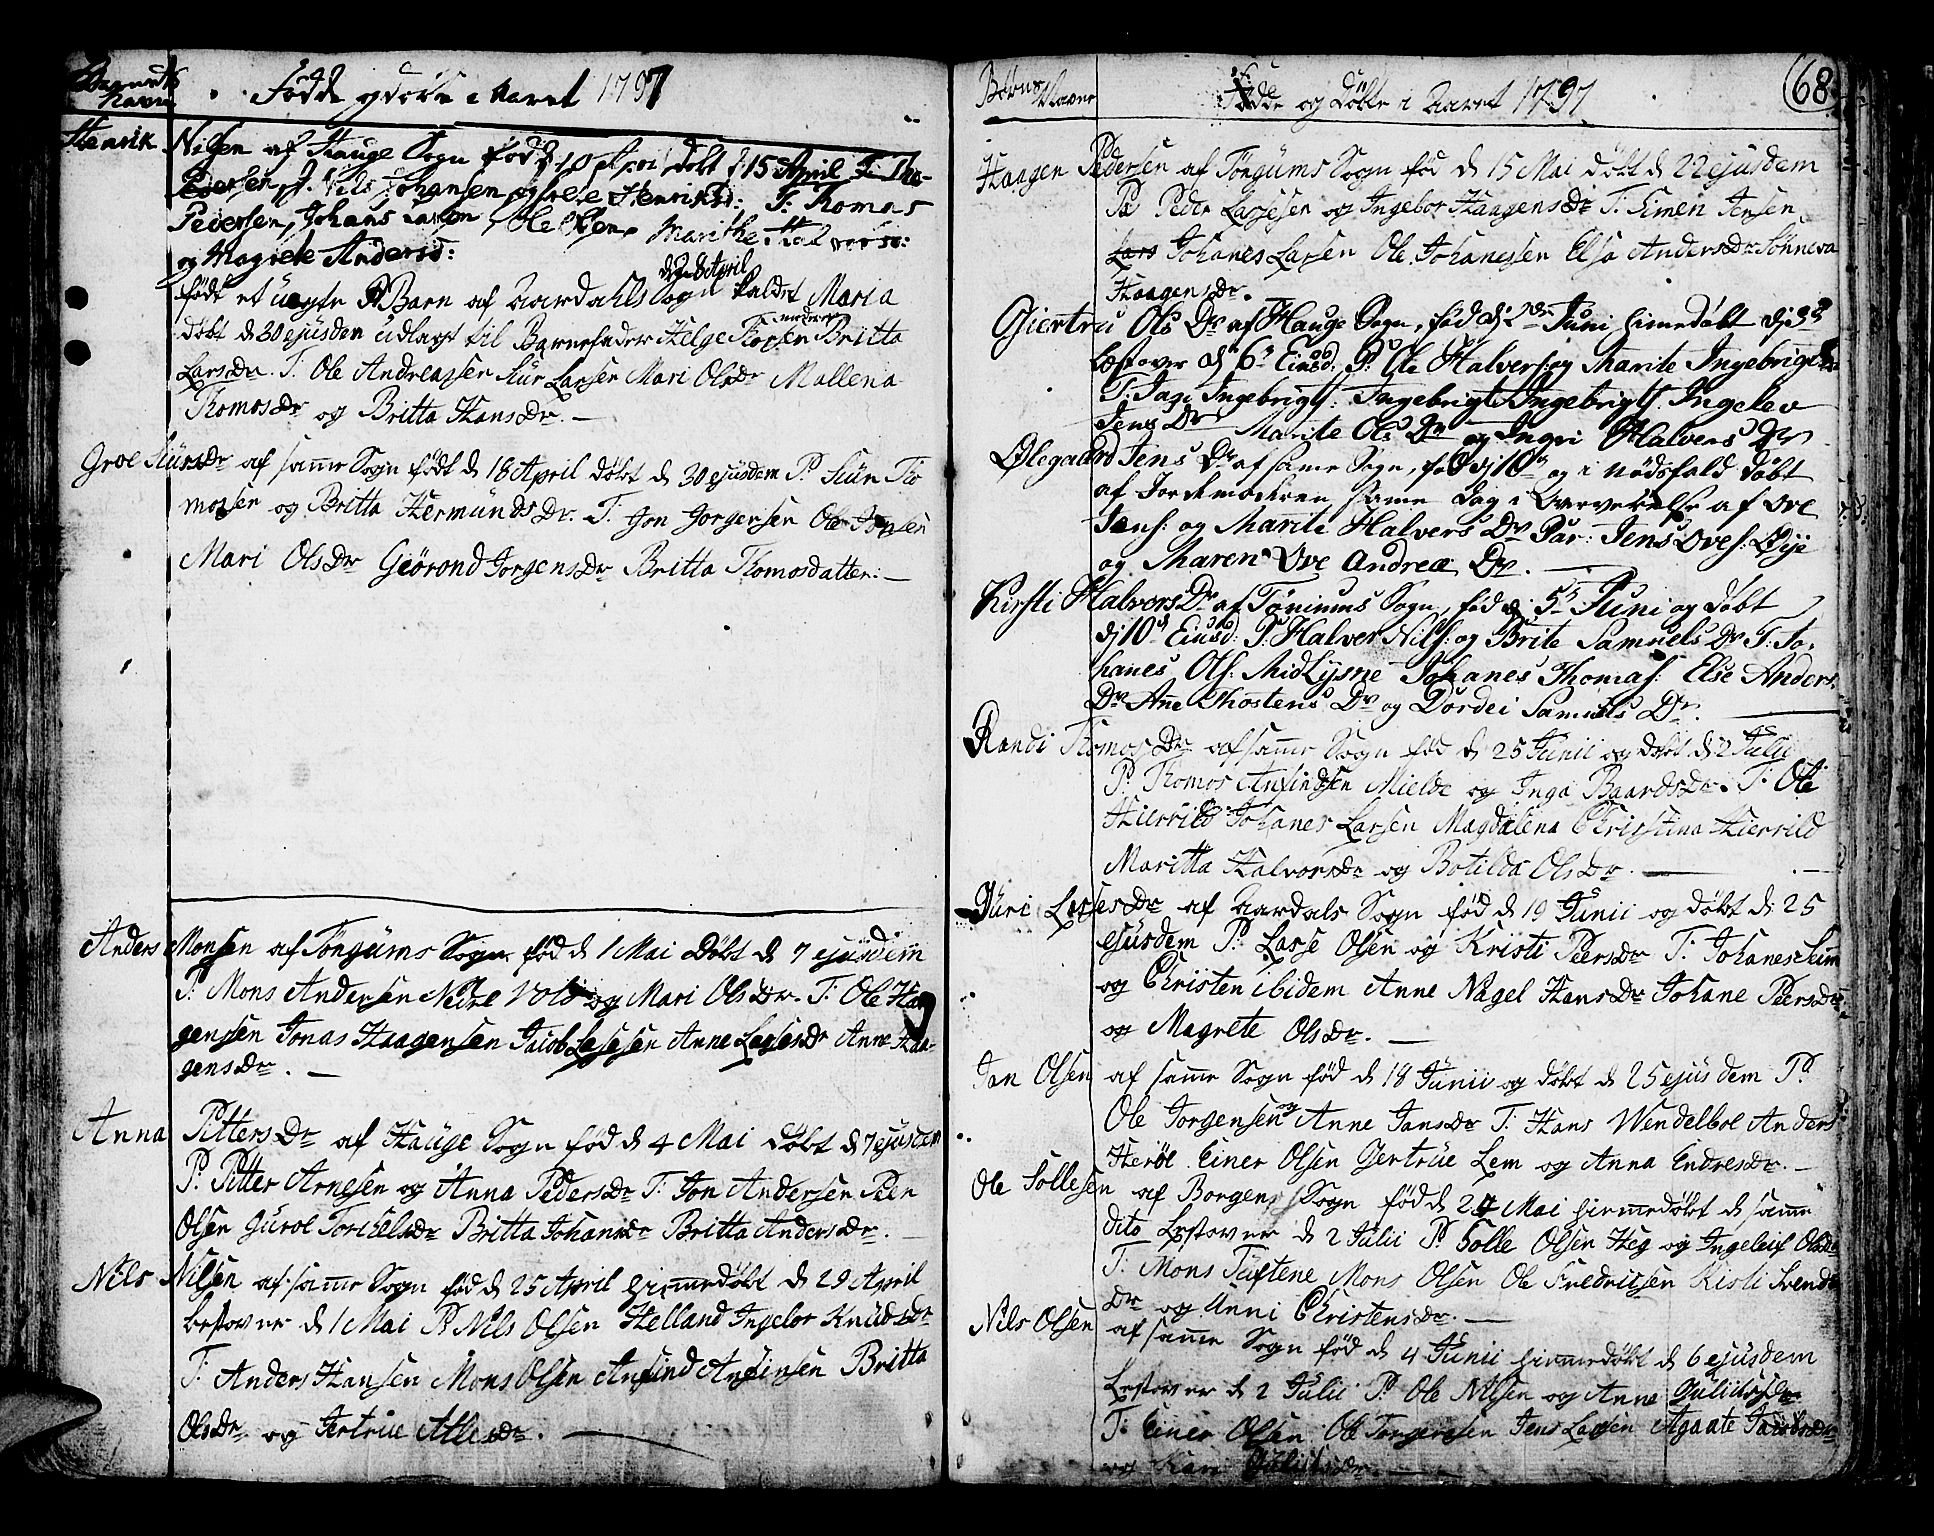 Barnets Navne
Fødde og døbte i Aaret 1797
Henrik Nilsen af Hauge Sogn født d 10 April døbt d 15 April T. Tho-
Pedersen P. Nils Johansen og Henriksd: T: Thomas
Pedersen, Johans Larsen, Marithe Halvorsd:
og Magrete Andersd:
d 28 April
født et uægte Barn af Aardahls Sogn kaldet Maria
døbt d 30 ejusdem udlagt til Barnefader Helge Moderen Britta
Larsdr. T. Ole Andreassen Siur Larsen Mari Olsdr Mallena
Thomosdr og Britta Hansdr. —
Groe Siursdr af samme Sogn født d 18 April døbt d 30 ejusdem P. Siur Tho
mossen og Britta Hermundsdr. T. Jon Jorgensen Ole Jonsen
Mari Olsdr Geørond Jorgensdr Britta Thomosdatter. —
Anders Monsen af Tøngums Sogn fød d 1 Mai døbt d 7 ejusdem
P. Mons Andersen Nedre Vold og Mari Olsdr. T. Ole Haa
gensen Jonas Haagensen Jacob Lassesen Anne Lassesdr Anne Haa-
gensdr. —
Anna Pittersdr af Hauge Sogn fød d 4 Mai døbt d 7 ejusdem
P. Pitter Arnesen og Anna Pedersdr T. Jon Andersen Peen
Olsen Guroe Torchelsdr Britta Johansdr Britta Andersdr. —
Nils Nilsen af samme Sogn fød d 25 April hiemedøbt d 29 April
Lestover d 1 Mai P. Nils Olsen Helland Ingebor Knudsdr
T. Anders Hansen Mons Olsen Anfind Anfinsen Britta
Olsdr og Jertrue Atlesdr. —
Børne Navne
Fødde og Døbte i Aaret 1797
68
Haagen Pedersen af Tøngums Sogn fød d 15 Mai døbt d 22 ejusdem
P. Peder Lassesen og Ingebor Haagensdr T. Simen Jensen
Lars Johanes Larsen Ole Johanessen Elsa Andersdr Sønneva
Haagensdr.
Giertru Ols Dr af Hauge Sogn, fød dj 2den Juni himedøbt dj 3d
Læst over dj 6 Eiusd. P. Ole Halvers og Marite Ingebrigts
T. Ingebrigts. Ingebrigt Ingebrigts. Ingelev
Jens Dr Marite Ols Dr og Ingri Halvers Dr
Ølegaard Jens Dr af same Sogn, fød dj 10 og i nødsfald døbt
af Jordemoderen same dag i Overværelse af Ove
Jens: og Marite Halvers Dr Par: Jens Oves: Øye
og Maren Ove Andreæ Dr. —
Kirsti Halvors Dr af Tønjums Sogn, fød dj 5 Juni og døbt
dj 10 Eiusd: P. Halver Nils: og Brite Samuels Dr T: Jo-
hanes Ols: Midlysne Johanes Thomas: Else Anders
Dr Ane Thostens Dr og Dordei Samuels Dr. —
Randi Thomosdr af samme Sogn fød d 25 Junii og døbt d 2 Julii
P. Thomos Anfindsen Mielde og Inga Baardsdr. T. Ole
Hierrild Johanes Larsen Magdalena Christina Hierrild
Maritta Halvorsdr og Botilda Olsdr. —
Guri Lassesdr af Aardals Sogn fød d 19 Junii og døbt d: 25
ejusdem P. Lasse Olsen og Kristi Peersdr T. Johanes
og Christen ibidem Anne Nagel Hansdr Johane Peersdr
og Magrete Olsdr. —
Jan Olsen af samme Sogn fød d 18 Junii og døbt d 25 ejusdem P.
Ole Jorgensen og Anne Jansdr T. Hans Wendelboe Anders
Herøe Einer Olsen Jertrue Lem og Anna Endresdr. —
Ole Sollesen af Borgens Sogn fød d 24 Mai hiemedøbt d samme
dito Lestover d 2 Julii P. Solle Olsen Heg og Ingeleif Olsdr
T. Mons Tuftene Mons Olsen Ole Fredricsen Kisti Svends
Dr og Anni Christensdr. —
Nils Olsen af samme Sogn fød d 4 Junii hiemedøbt d 6 ejusdem
Lestover d 2 Julii P. Ole Nilsen og Anne
T. Einer Olsen Ole Torgersen Jens Larsen Agaate Jacobsdr
og Kari